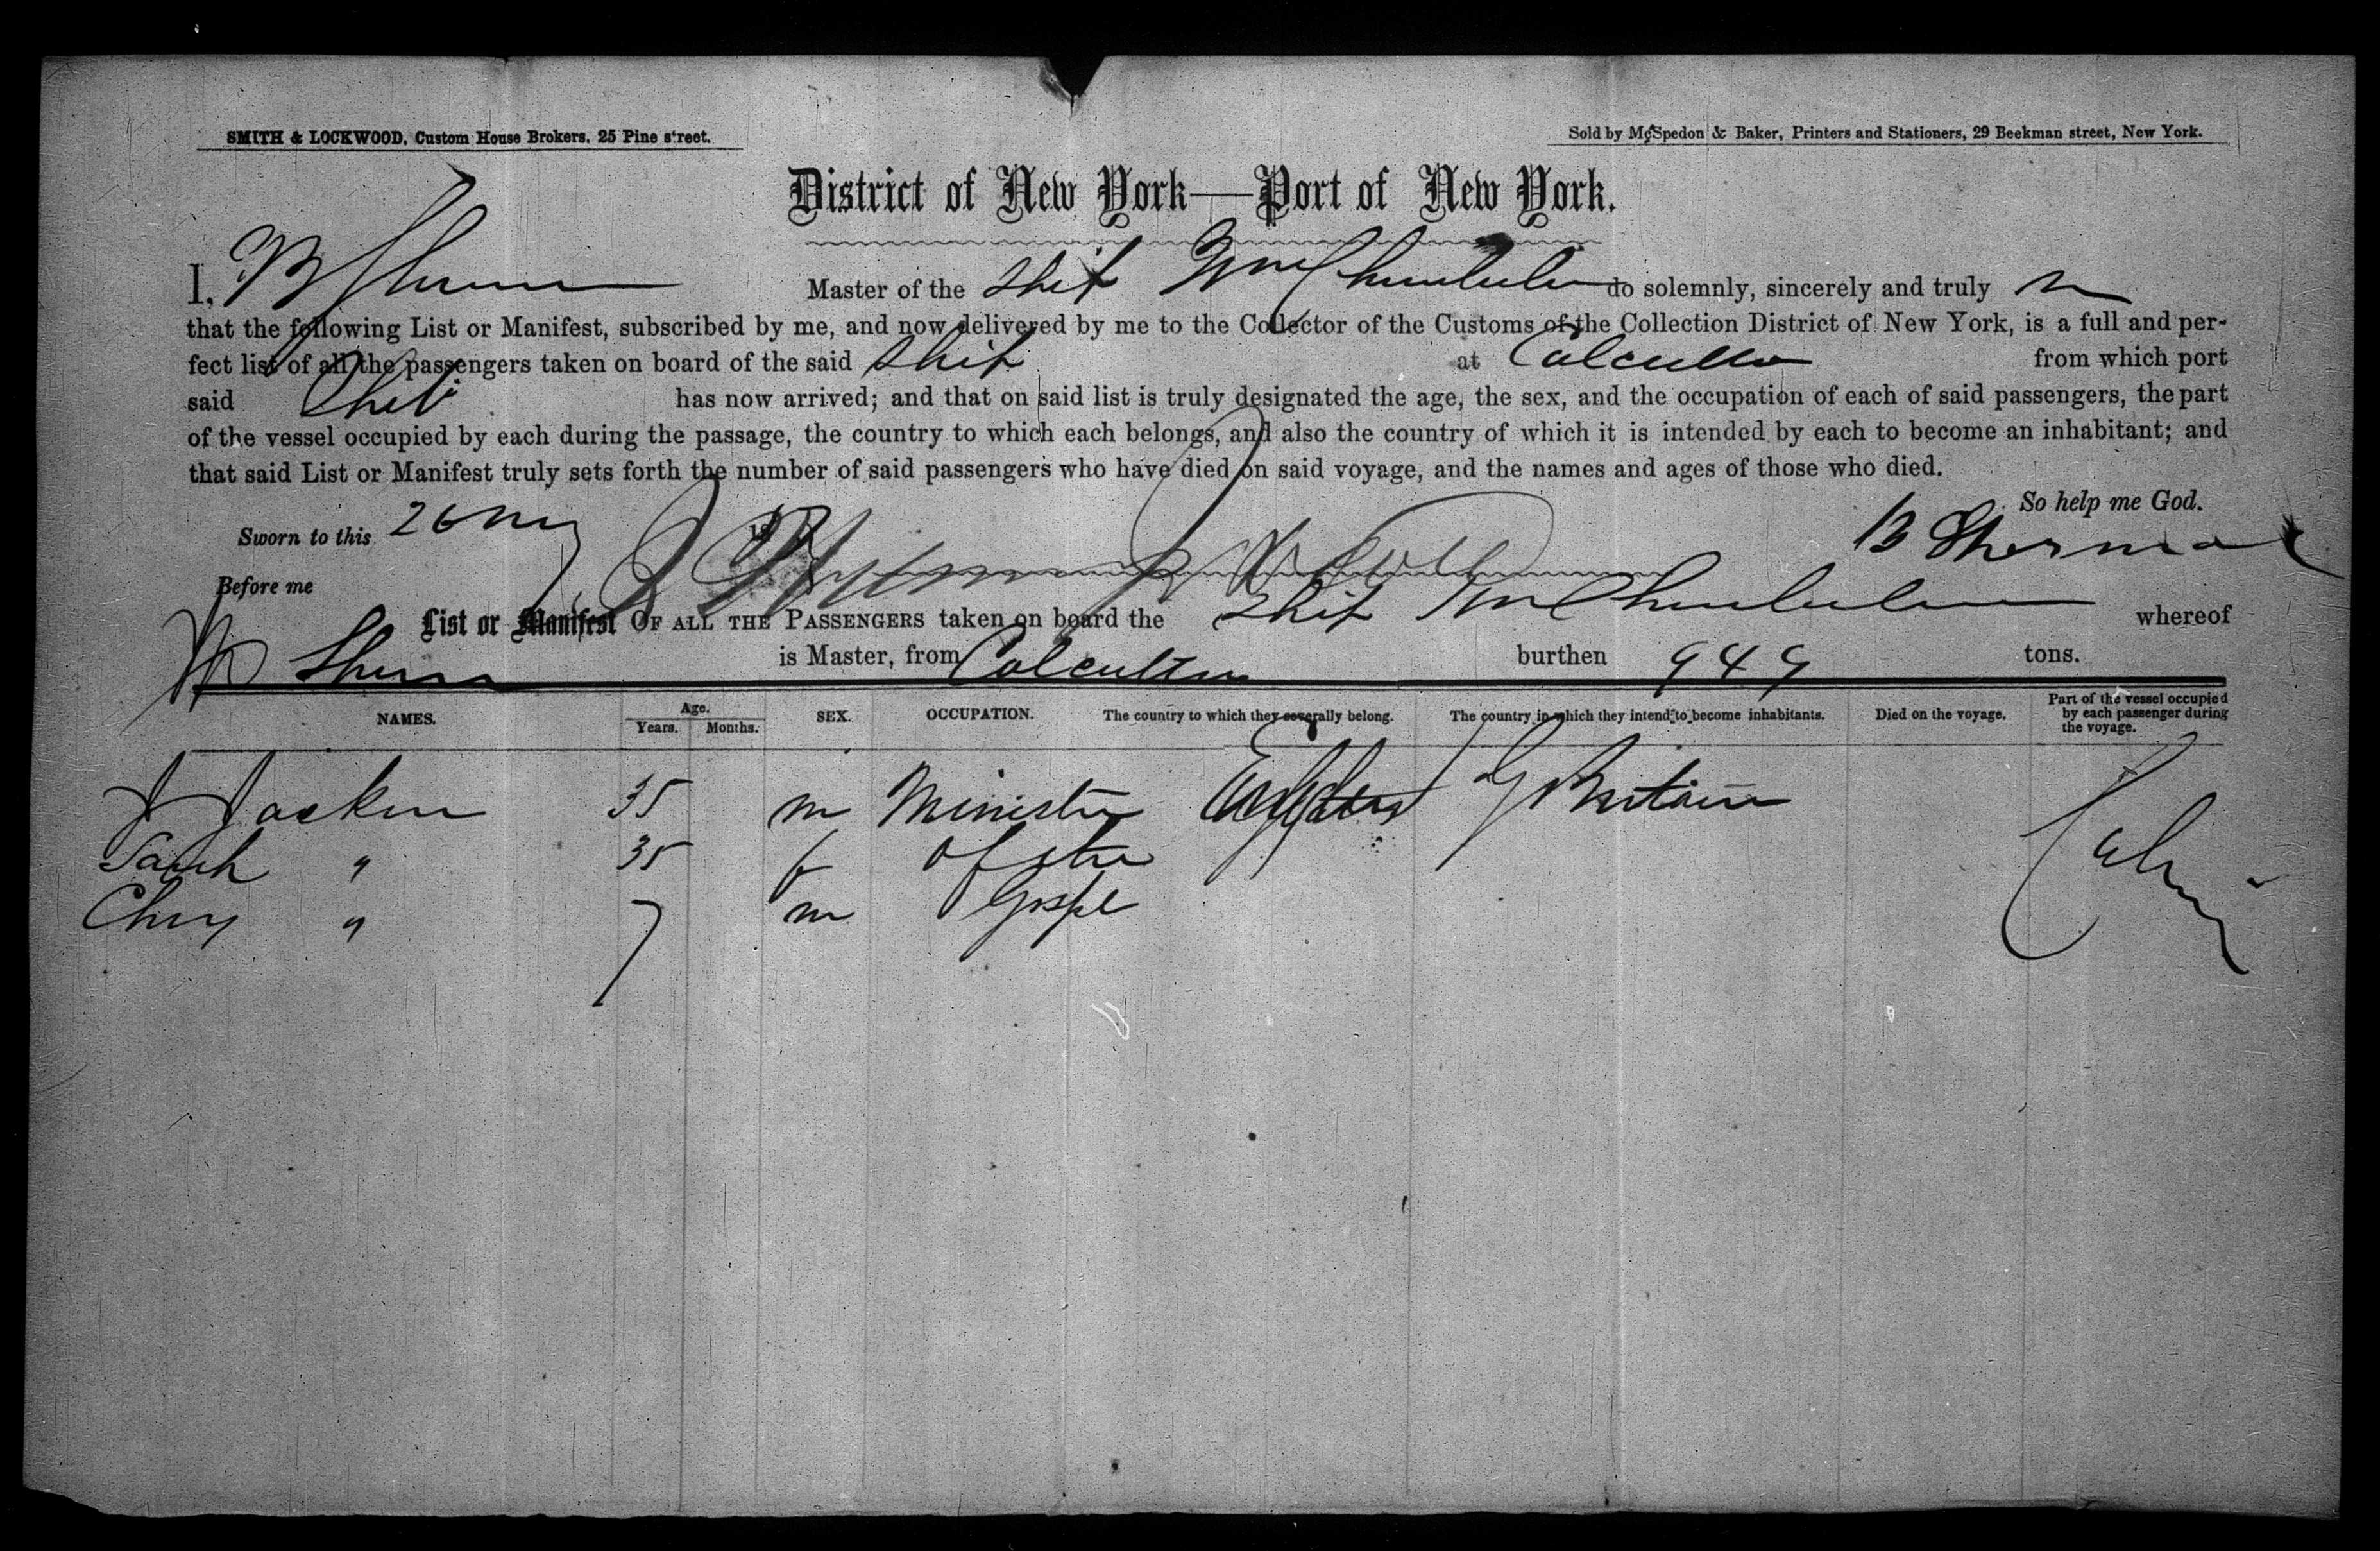 SMITH & LOCKWOOD, Custom House Brokers, 25 Pine street.
Sold by McSpedon & Baker, Printers and Stationers, 29 Beekman street, New York.
District of New York—Port of New York.
I, B Sherman Master of the Ship Wm do solemnly, sincerely and truly
that the following List or Manifest, subscribed by me, and now delivered by me to the Collector of the Customs of the Collection District of New York, is a full and per-
fect list of all the passengers taken on board of the said Ship at Calcutta from which port
said Ship has now arrived; and that on said list is truly designated the age, the sex, and the occupation of each of said passengers, the part
of the vessel occupied by each during the passage, the country to which each belongs, and also the country of which it is intended by each to become an inhabitant; and
that said List or Manifest truly sets forth the number of said passengers who have died on said voyage, and the names and ages of those who died.
So help me God.
Sworn to this 26 18
B Sherman
Before me
List or Manifest OF ALL THE PASSENGERS taken on board the Ship Wm whereof
Sherman is Master, from Calcutta burthen 949 tons.
NAMES. Age. Years. Months. SEX. OCCUPATION. The country to which they severally belong. The country in which they intend to become inhabitants. Died on the voyage. Part of the vessel occupied by each passenger during the voyage.
J 35 m Minister G Britain Cabin
Sarah " 35 f of the
" 7 m Gospel